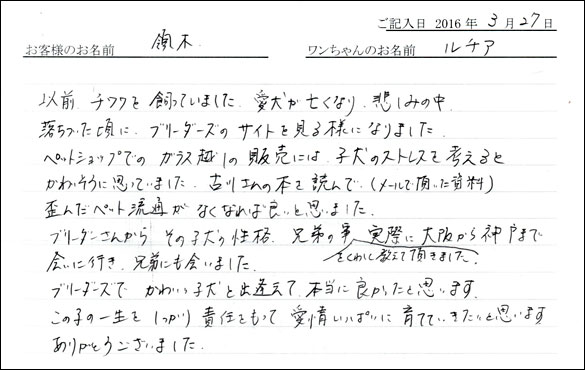 ご記入日 2016年 3月27日
お客様のお名前 領木 ワンちゃんのお名前 ルチア
以前 チワワを飼っていました。愛犬が亡くなり、悲しみの中、
落ちついた頃に、ブリーダーズのサイトを見る様になりました。
ペットショップでのガラス越しの販売には、子犬のストレスを考えると
かわいそうに思っていました。古川さんの本を読んで、(メールで頂いた資料)
歪んだペット流通がなくなれば良いと思いました。
ブリーダーさんから その子犬の性格、兄弟の事、実際に大阪から神戸まで
をくわしく教えて頂きました。
会いに行き、兄弟にも会いました。
ブリーダーズで かわいい子犬と出逢えて、本当に良かったと思います。
この子の一生を しっかり責任をもって 愛情いっぱいに 育てていきたいと思います
ありがとうございました。